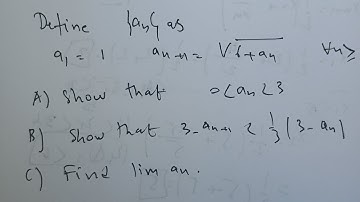 Define {an} as
a1 = 1 an+1 = √6+an ∀n≥
A) Show that 0<an<3
B) Show that 3-an+1 < 1/3 (3-an)
C) Find lim an.